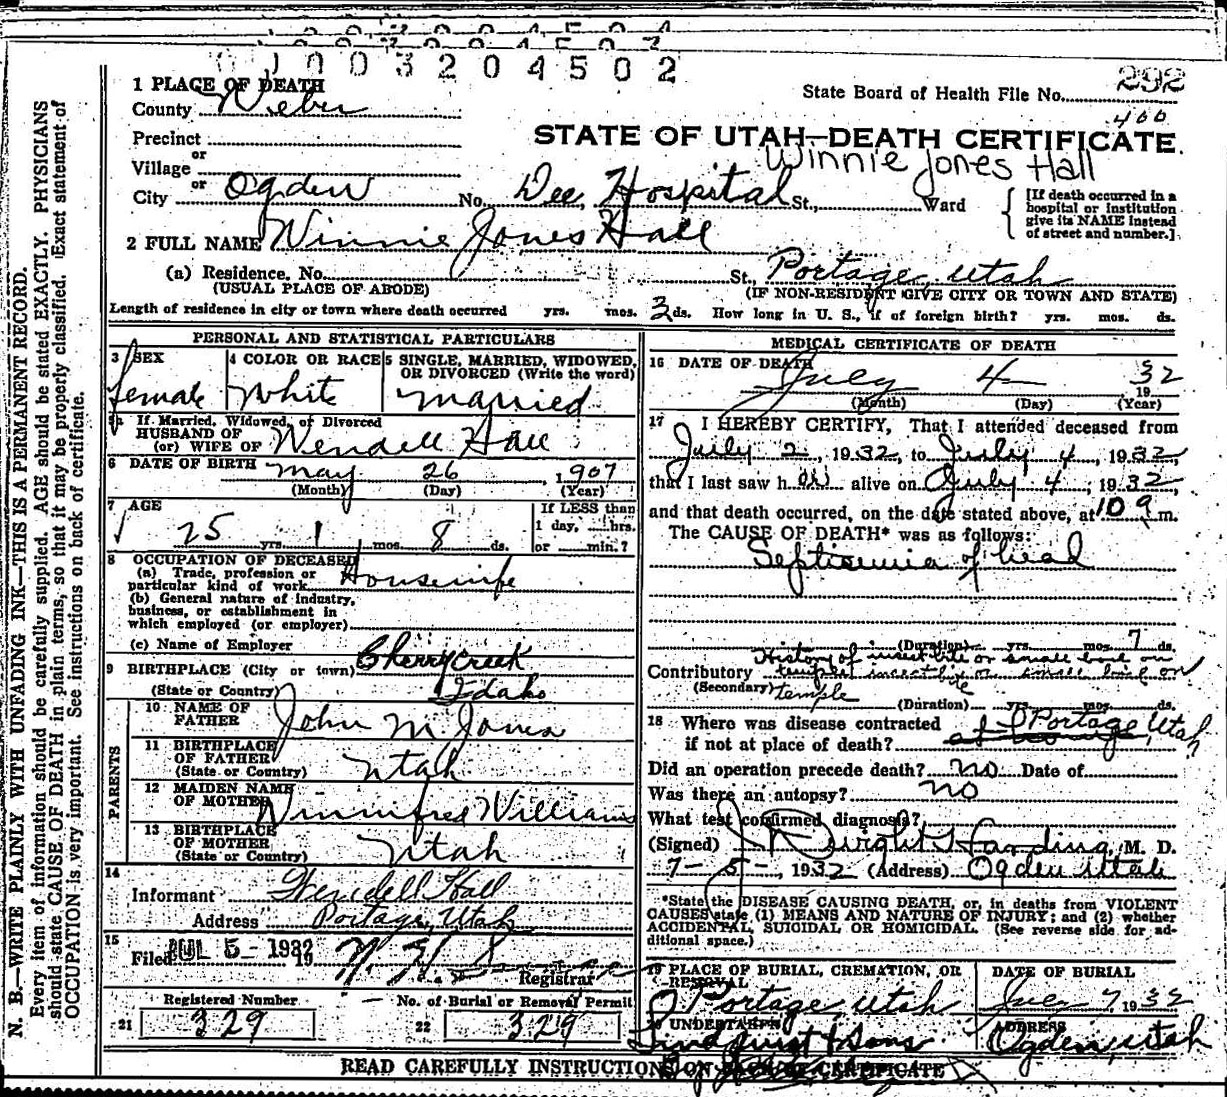 0 0 0 3 2 0 4 5 0 2
292
State Board of Health File No.
400
1 PLACE OF DEATH
County Weber
STATE OF UTAH—DEATH CERTIFICATE
Precinct
Winnie Jones Hall
or
Village
or
City Ogden No. Dee Hospital St., Ward
[If death occurred in a
hospital or institution
give its NAME instead
of street and number.]
2 FULL NAME Winnie Jones Hall
(a) Residence. No. St., Portage, Utah
(USUAL PLACE OF ABODE) (IF NON-RESIDENT GIVE CITY OR TOWN AND STATE)
Length of residence in city or town where death occurred yrs. mos. 3 ds. How long in U. S., if of foreign birth? yrs. mos. ds.
PERSONAL AND STATISTICAL PARTICULARS
3 SEX 4 COLOR OR RACE 5 SINGLE, MARRIED, WIDOWED,
OR DIVORCED (Write the word)
female White married
5a If Married, Widowed, or Divorced
HUSBAND OF
(or) WIFE OF Wendell Hall
6 DATE OF BIRTH May 26, 1907
(Month) (Day) (Year)
7 AGE
25 yrs. 1 mos. 8 ds.
If LESS than
1 day, hrs.
or min.?
8 OCCUPATION OF DECEASED
(a) Trade, profession or
particular kind of work Housewife
(b) General nature of industry,
business, or establishment in
which employed (or employer)
(c) Name of Employer
9 BIRTHPLACE (City or town) Cherry Creek
(State or Country) Idaho
PARENTS
10 NAME OF
FATHER John M Jones
11 BIRTHPLACE
OF FATHER
(State or Country) Utah
12 MAIDEN NAME
OF MOTHER Winnifred Williams
13 BIRTHPLACE
OF MOTHER
(State or Country) Utah
14
Informant Wendell Hall
Address Portage, Utah
15
Filed JUL 5 - 1932 19
Registrar
Registered Number No. of Burial or Removal Permit
21 329 22 329
MEDICAL CERTIFICATE OF DEATH
16 DATE OF DEATH
July 4 1932
(Month) (Day) (Year)
17 I HEREBY CERTIFY, That I attended deceased from
July 2, 1932, to July 4, 1932,
that I last saw h er alive on July 4, 1932,
and that death occurred, on the date stated above, at 10 9 m.
The CAUSE OF DEATH* was as follows:
Septicemia of head
(Duration) yrs. mos. 7 ds.
History of insect bite or small boil on
Contributory temple insect bite or small boil on
(Secondary) temple
(Duration) yrs. mos. ds.
18 Where was disease contracted
if not at place of death? Portage, Utah
Did an operation precede death? no Date of
Was there an autopsy? no
What test confirmed diagnosis?
(Signed) Dwight Harding, M. D.
7-5-, 1932 (Address) Ogden Utah
*State the DISEASE CAUSING DEATH, or, in deaths from VIOLENT
CAUSES state (1) MEANS AND NATURE OF INJURY; and (2) whether
ACCIDENTAL, SUICIDAL OR HOMICIDAL. (See reverse side for ad-
ditional space.)
19 PLACE OF BURIAL, CREMATION, OR
REMOVAL
Portage, Utah
DATE OF BURIAL
July 7, 1932
20 UNDERTAKER
Lindquist & Sons
ADDRESS
Ogden, Utah
READ CAREFULLY INSTRUCTIONS ON BACK OF CERTIFICATE
N. B.—WRITE PLAINLY WITH UNFADING INK—THIS IS A PERMANENT RECORD.
Every item of information should be carefully supplied. AGE should be stated EXACTLY. PHYSICIANS
should state CAUSE OF DEATH in plain terms, so that it may be properly classified. Exact statement of
OCCUPATION is very important. See instructions on back of certificate.